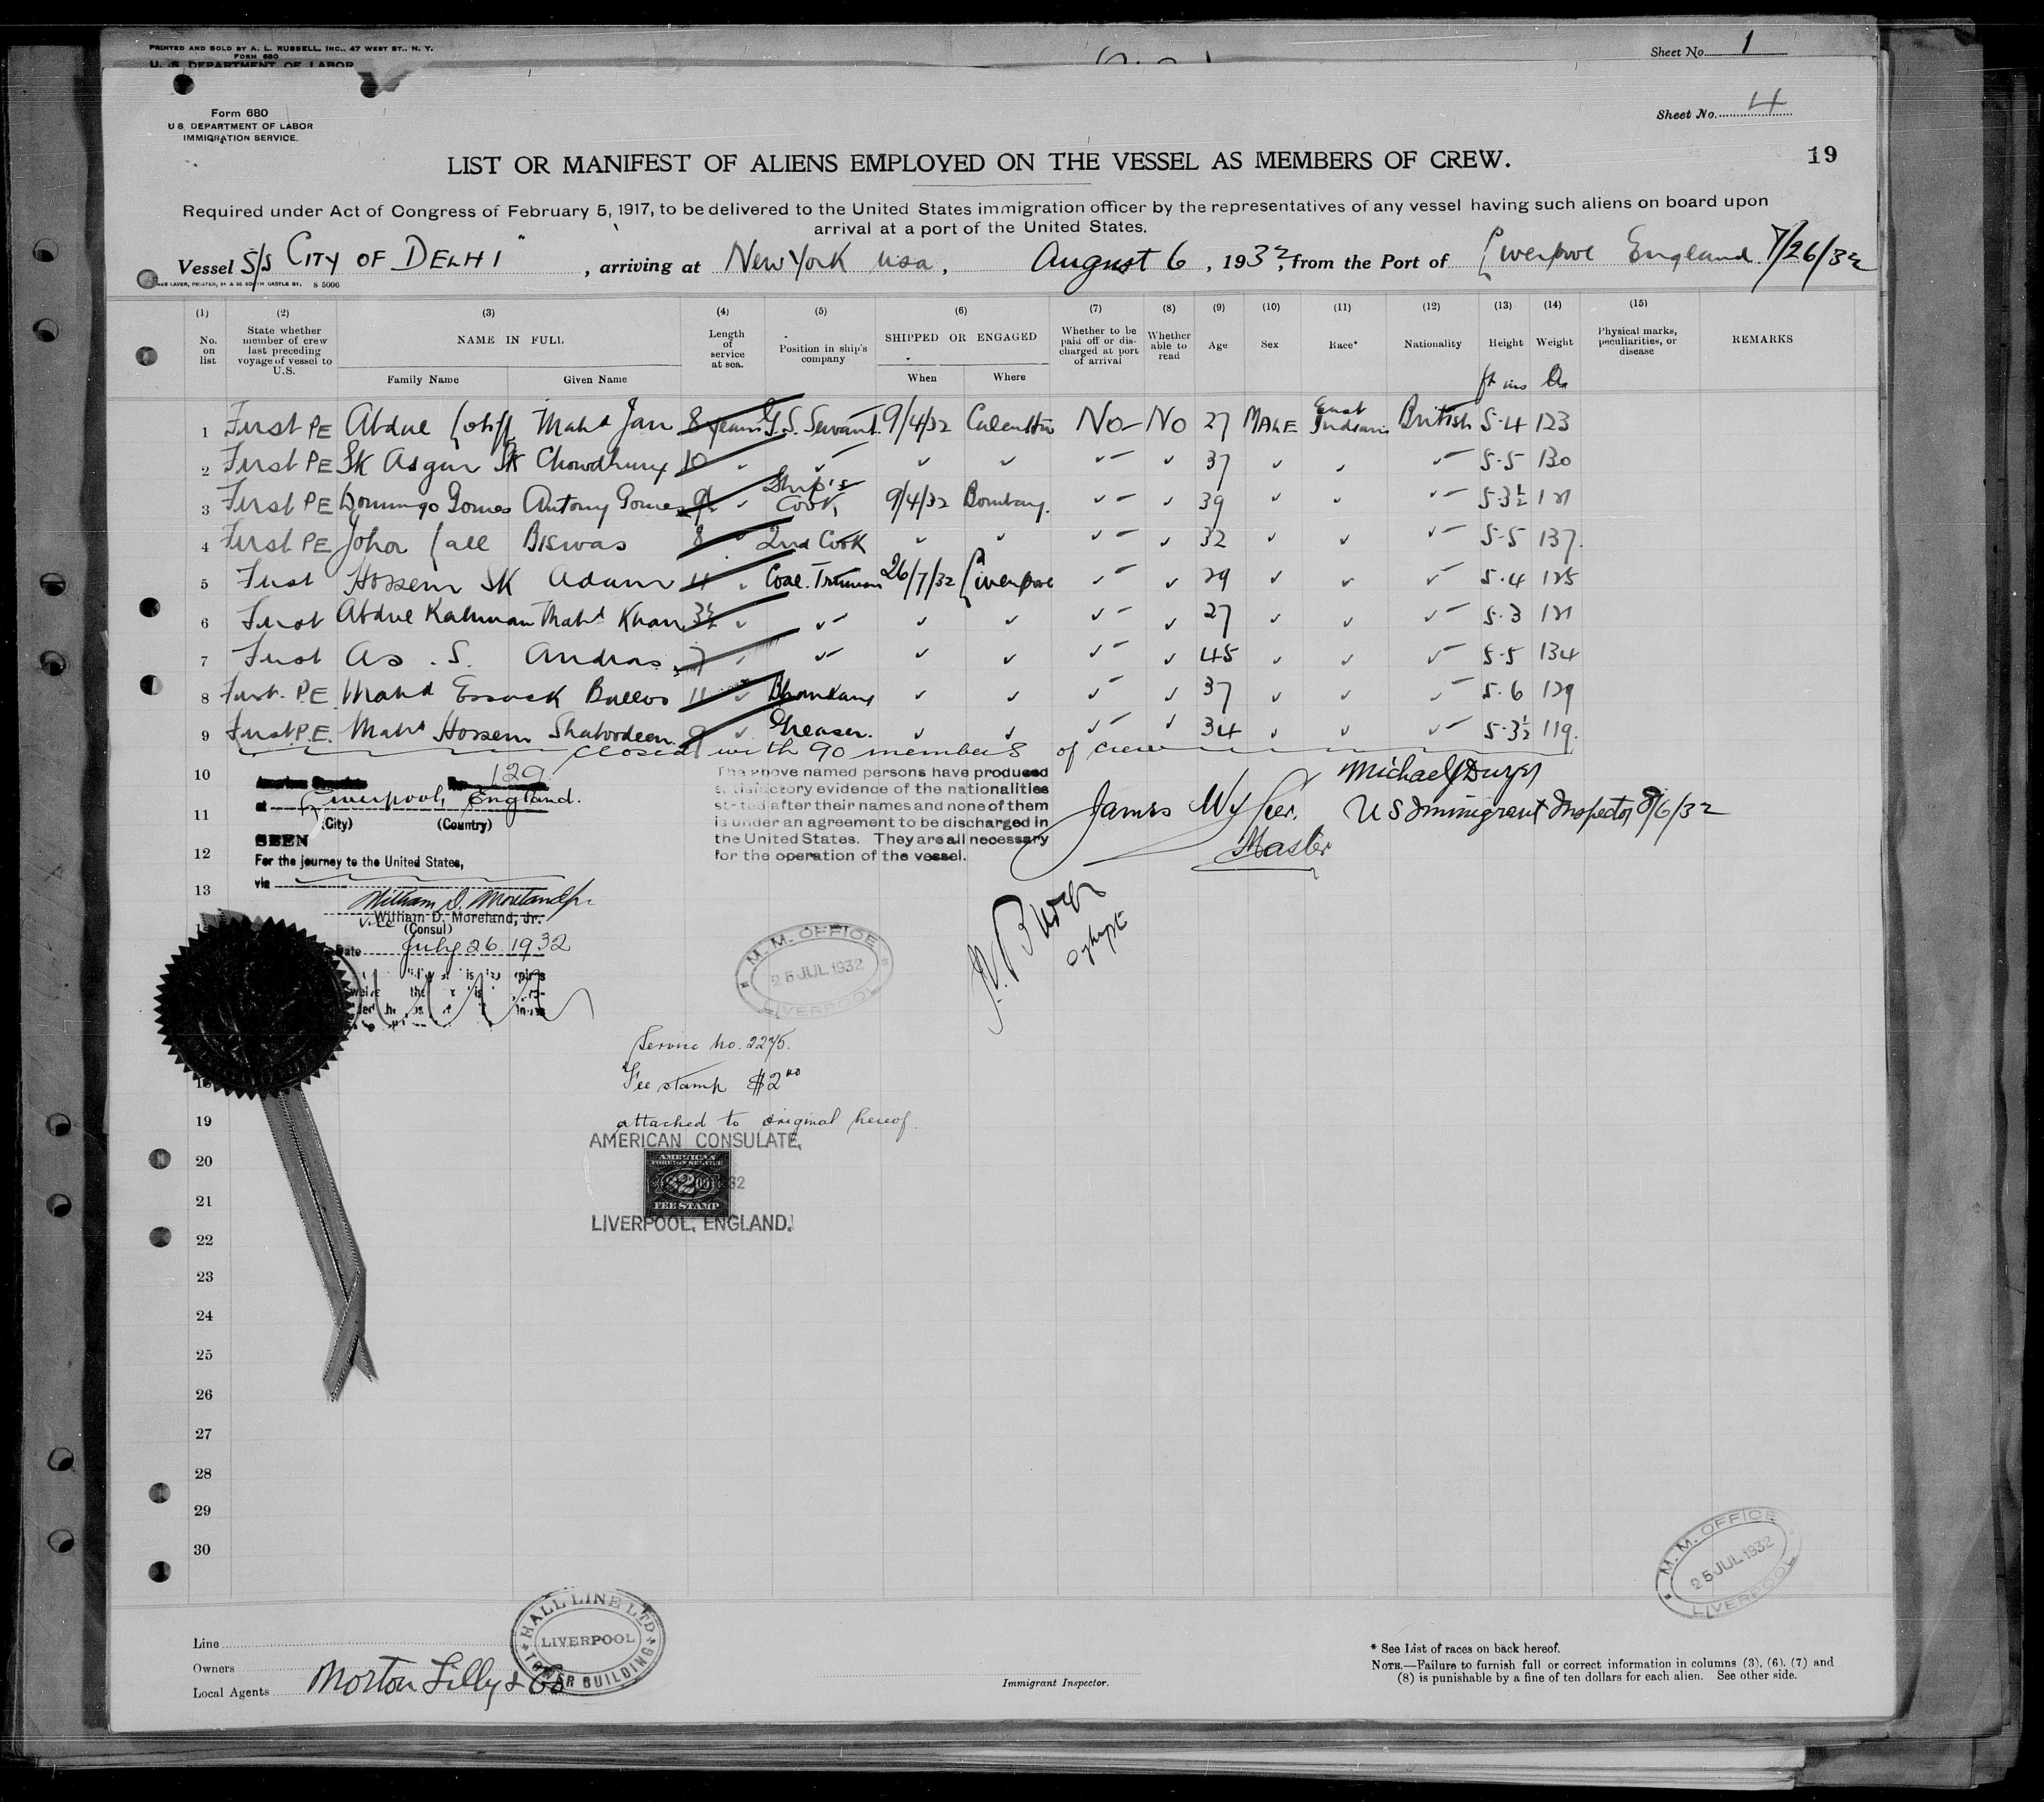 PRINTED AND SOLD BY A. L. RUSSELL, INC., 47 WEST ST., N. Y.
FORM 680
U. S. DEPARTMENT OF LABOR
Sheet No. 1
Form 680
U.S. DEPARTMENT OF LABOR
IMMIGRATION SERVICE.
Sheet No. 4
LIST OR MANIFEST OF ALIENS EMPLOYED ON THE VESSEL AS MEMBERS OF CREW.
19
Required under Act of Congress of February 5, 1917, to be delivered to the United States immigration officer by the representatives of any vessel having such aliens on board upon
arrival at a port of the United States.
Vessel S/S CITY OF DELHI", arriving at New York USA, August 6, 1932, from the Port of Liverpool England 7/26/32
S 5006
(1) (2) (3) (4) (5) (6) (7) (8) (9) (10) (11) (12) (13) (14) (15)
No. on list
State whether member of crew last preceding voyage of vessel to U.S.
NAME IN FULL
Family Name
Given Name
Length of service at sea.
Position in ship's company
SHIPPED OR ENGAGED
When
Where
Whether to be paid off or discharged at port of arrival
Whether able to read
Age
Sex
Race*
Nationality
Height
Weight
Physical marks, peculiarities, or disease
REMARKS
ft ins
1 First PE Abdul Lotiff Mahd Jan 8 years G.S. Servant 9/4/32 Calcutta No - No 27 MALE East Indian British 5-4 123
2 First PE SK Asgur SK Chowdhury 10 ✓ ✓ ✓ ✓ ✓ ✓ 37 ✓ ✓ ✓ 5-5 130
3 First PE Domingo Gomes Antony Gomes ✓ Ship's Cook 9/4/32 Bombay. ✓ ✓ 39 ✓ ✓ 5-3½ 121
4 First PE Johor Lall Biswas 8 2nd Cook ✓ ✓ ✓ ✓ 32 ✓ ✓ ✓ 5-5 137.
5 First Hossein SK Adam 4 ✓ Coal Trimmer 26/7/32 Liverpool ✓ ✓ 29 ✓ ✓ ✓ 5-4 125
6 First Abdul Rahman Mahd Khan 3½ ✓ ✓ ✓ ✓ ✓ ✓ 27 ✓ ✓ ✓ 5-3 121
7 First As. S. Andras 7 ✓ ✓ ✓ ✓ ✓ ✓ 45 ✓ ✓ ✓ 5-5 134
8 First. PE Mahd Essack 11 ✓ Bhandary ✓ ✓ ✓ ✓ 37 ✓ ✓ ✓ 5-6 129
9 First P.E. Mahd Hossein 9 ✓ Greaser. ✓ ✓ ✓ ✓ 34 ✓ ✓ ✓ 5-3½ 119.
closed with 90 members of crew
10
11
12
13
129
at Liverpool, England.
(City) (Country)
SEEN
For the journey to the United States,
via
William D. Moreland Jr.
William D. Moreland, Jr.
Vice (Consul)
Date July 26. 1932
The above named persons have produced
satisfactory evidence of the nationalities
stated after their names and none of them
is under an agreement to be discharged in
the United States. They are all necessary
for the operation of the vessel.
James
Master
Michael J Dwyer
US Immigrant Inspector 8/6/32
M. M. OFFICE
25 JUL 1932
LIVERPOOL
Service No. 2275.
Fee stamp $2.00
attached to original hereof.
AMERICAN CONSULATE,
AMERICAN
FOREIGN SERVICE
$2.00
FEE STAMP
LIVERPOOL, ENGLAND.
19
20
21
22
23
24
25
26
27
28
29
30
M. M. OFFICE
25 JUL 1932
LIVERPOOL
Line
Owners
Local Agents Morton Lilly & Co
HALL LINE LTD
LIVERPOOL
TOWER BUILDING
Immigrant Inspector.
* See List of races on back hereof.
NOTE.—Failure to furnish full or correct information in columns (3), (6), (7) and
(8) is punishable by a fine of ten dollars for each alien. See other side.